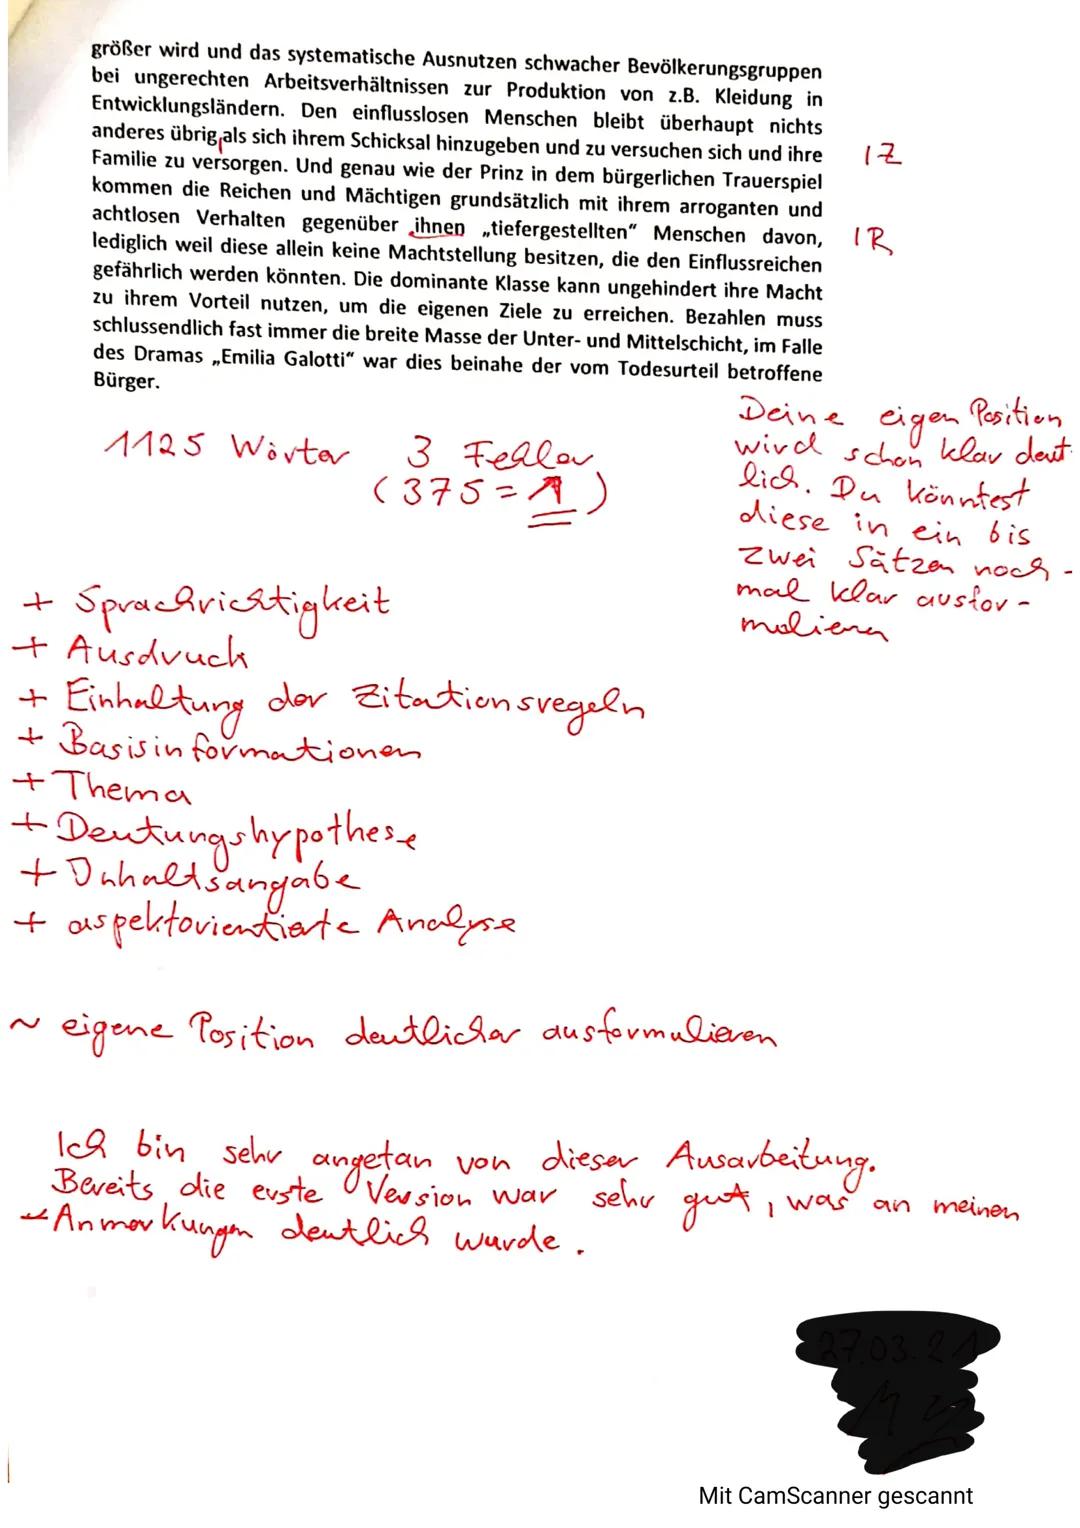 größer wird und das systematische Ausnutzen schwacher Bevölkerungsgruppen
bei ungerechten Arbeitsverhältnissen zur Produktion von z.B. Kleidung in
Entwicklungsländern. Den einflusslosen Menschen bleibt überhaupt nichts
anderes übrig,als sich ihrem Schicksal hinzugeben und zu versuchen sich und ihre
1Z
Familie zu versorgen. Und genau wie der Prinz in dem bürgerlichen Trauerspiel
kommen die Reichen und Mächtigen grundsätzlich mit ihrem arroganten und
achtlosen Verhalten gegenüber ihnen „tiefergestellten“ Menschen davon,
1R
lediglich weil diese allein keine Machtstellung besitzen, die den Einflussreichen
gefährlich werden könnten. Die dominante Klasse kann ungehindert ihre Macht
zu ihrem Vorteil nutzen, um die eigenen Ziele zu erreichen. Bezahlen muss
schlussendlich fast immer die breite Masse der Unter- und Mittelschicht, im Falle
des Dramas „Emilia Galotti“ war dies beinahe der vom Todesurteil betroffene
Bürger.
Deine eigen Position
wird schon klar deut-
lich. Du könntest
diese in ein bis
zwei Sätzen noch-
mal klar ausfor-
mulieren
1125 Wörter 3 Fehler
(375=1)
+ Sprachrichtigkeit
+ Ausdruck
+ Einhaltung der Zitationsregeln
+ Basisinformationen
+ Thema
+ Deutungshypothese
+ Inhaltsangabe
+ aspektorientierte Analyse
~ eigene Position deutlicher ausformulieren
Ich bin sehr angetan von dieser Ausarbeitung.
Bereits die erste Version war sehr gut, was an meinen
Anmerkungen deutlich wurde.
27.03.21
Mit CamScanner gescannt